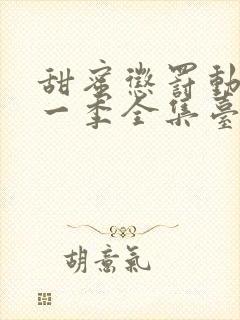 甜蜜懲罰動
一季全集臺
胡意氣